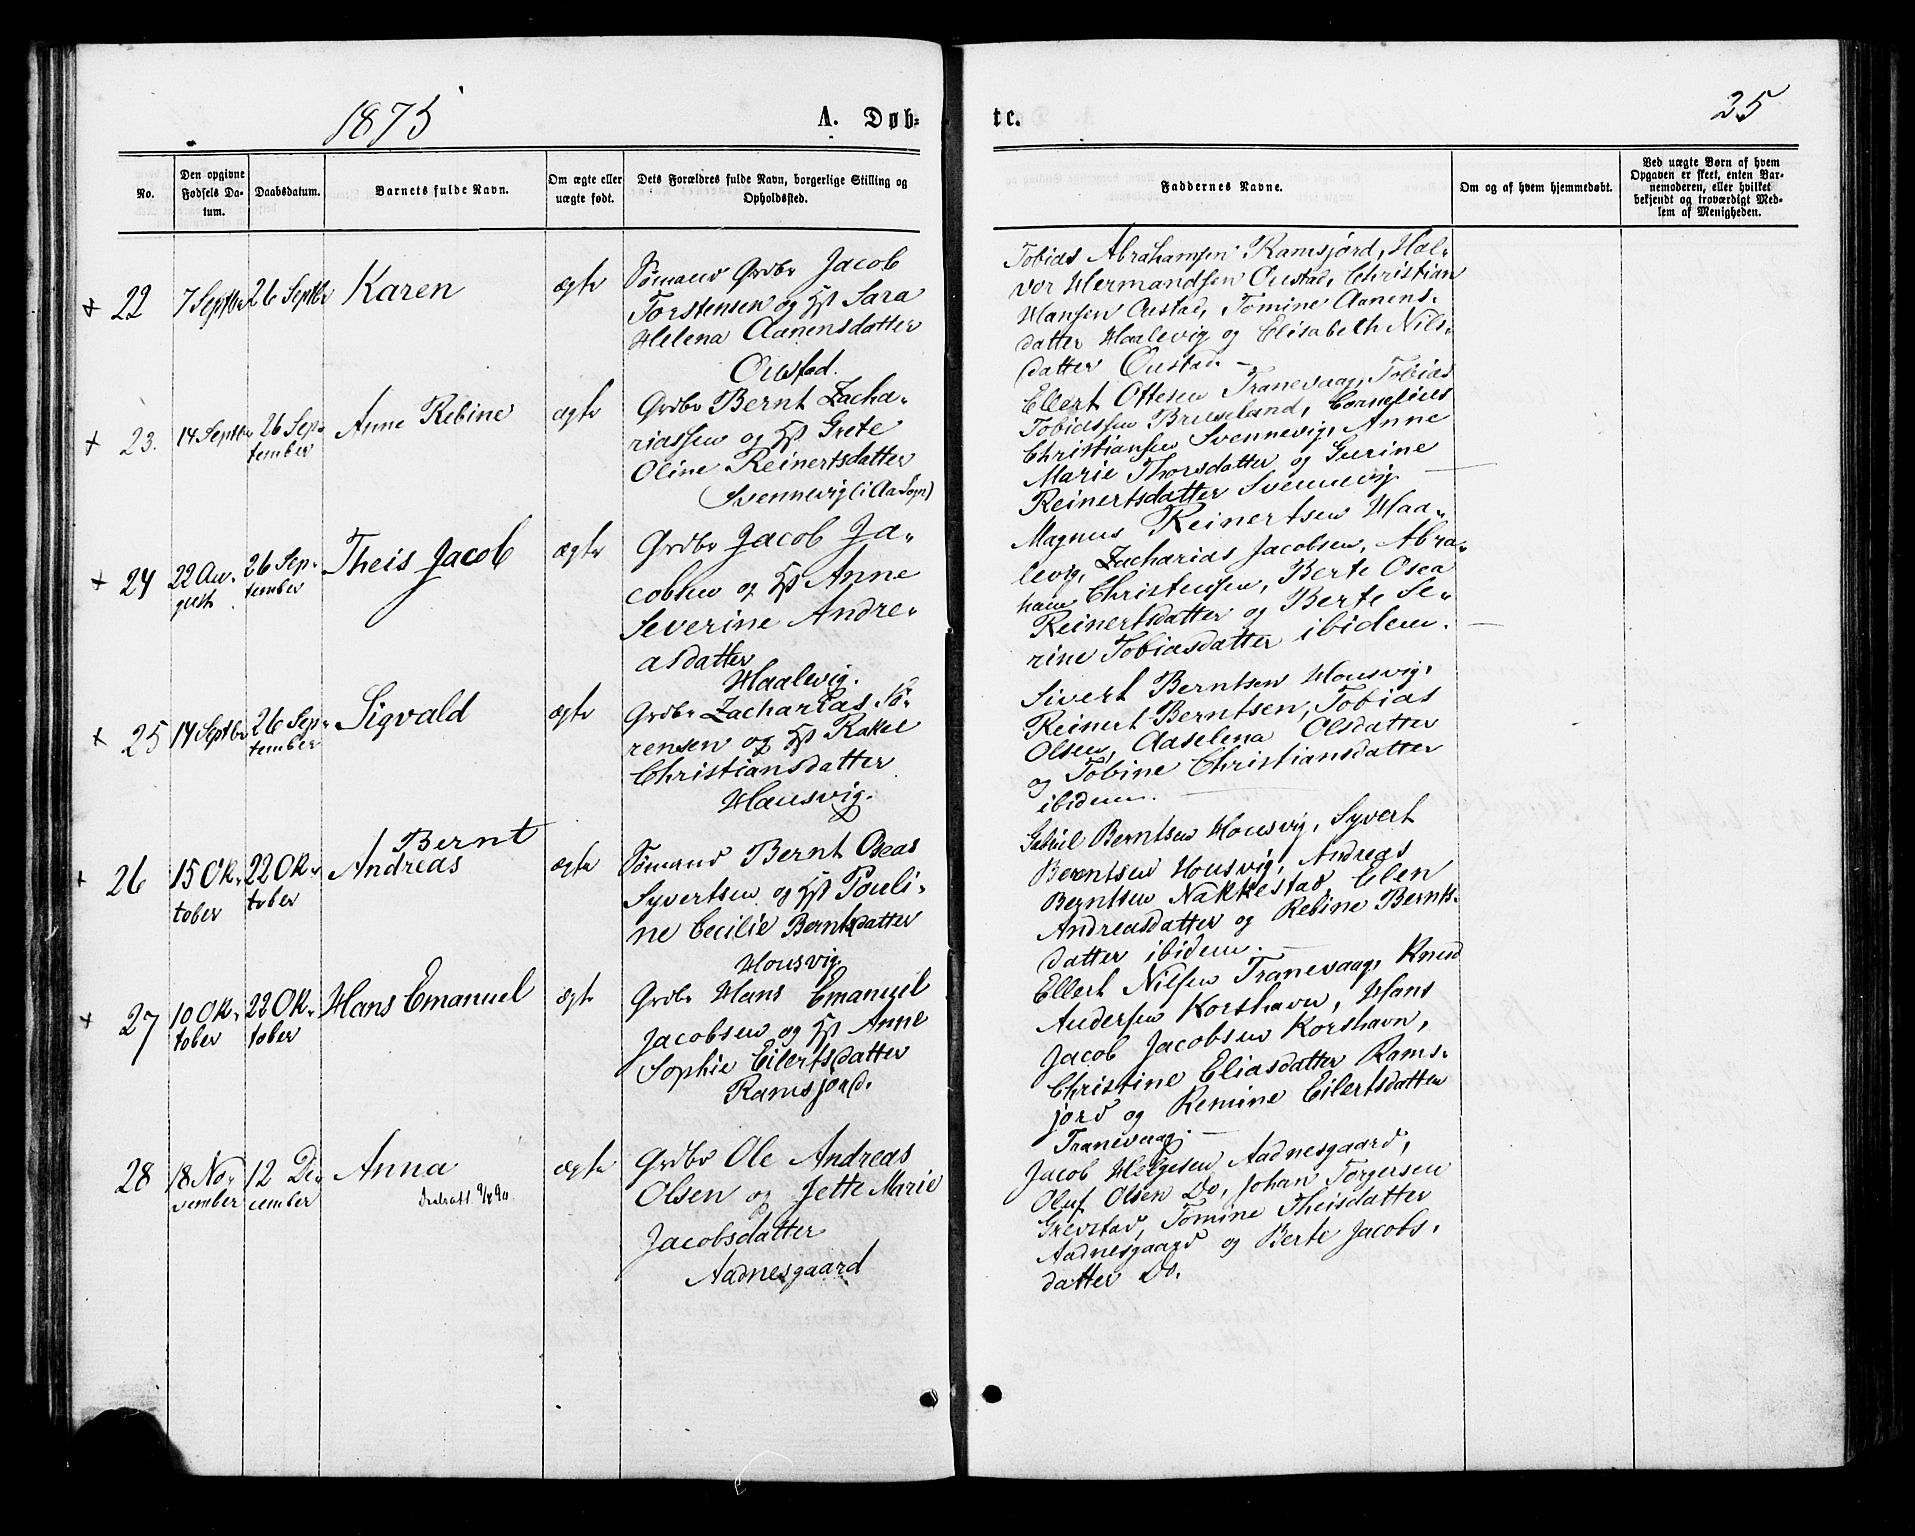 1875
A. Døb-
te.
25
No.
Den opgivne
Fødsels Da-
tum.
Daabsdatum.
Barnets fulde Navn.
Om ægte eller
uægte født.
Dets Forældres fulde Navn, borgerlige Stilling og
Opholdssted.
Faddernes Navne.
Om og af hvem hjemmedøbt.
Ved uægte Børn af hvem
Opgaven er skeet, enten Bar-
nemoderen, eller hvilket
bekjendt og troværdigt Med-
lem af Menigheden.
+ 22
7 Septbr
26 Septbr
Karen
ægte
Sømand Grdbr Jacob
Torstensen og Hst Sara
Helena Aanensdatter
Oustad.
Tobias Abrahamsen Ramsjord, Hal-
vor Hermandsen Oustad, Christian
Hansen Oustad, Tomine Aanens-
datter Haalevig og Elisabeth Nils-
datter Oustad. -
+ 23.
14 Septbr
26 Sep-
tember
Anne Rebine
ægte
Grdbr Bernt Zacha-
riassen og Hst Grete
Oline Reinertsdatter
Svennevig (i Aa Sogn)
Ellert Ottesen Tranevaag, Tobias
Tobiassen Bruseland, Cornelius
Christiansen Svennevig, Anne
Marie Thorsdatter og Gurine
Reinertsdatter Svennevig
+ 24
22 Au-
gust
26 Sep-
tember
Theis Jacob
ægte
Grdbr Jacob Ja-
cobsen og Hst Anne
Severine Andre-
asdatter
Haalevig.
Magnus Reinertsen Haa-
levig, Zacharias Jacobsen, Abra-
ham Christensen, Berte Osea
Reinertsdatter og Berte Se-
rine Tobiasdatter ibidem.
+ 25
14 Septbr
26 Sep-
tember
Sigvald
ægte
Grdbr Zacharias Sø-
rensen og Hst Rakel
Christiansdatter
Hausvig.
Sivert Berntsen Housvig,
Reinert Berntsen, Tobias
Olsen, Aaselena Olsdatter
og Tobine Christiansdatter
ibidem.
+ 26
15 Ok-
tober
22 Ok-
tober
Bernt
Andreas
ægte
Sømand Bernt Oseas
Syvertsen og Hst Pauli-
ne Cecilie Berntsdatter
Housvig.
Gabriel Berntsen Housvig, Syvert
Berentsen Housvig, Andreas
Berntsen Nakkestad, Elen
Andreasdatter og Rebine Bernts-
datter ibidem.
+ 27
10 Ok-
tober
22 Ok-
tober
Hans Emanuel
ægte
Grdbr Hans Emanuel
Jacobsen og Hst Anne
Sophie Eilertsdatter
Ramsjord.
Ellert Nilsen Tranevaag, Knud
Andersen Korshavn, Hans
Jacob Jacobsen Korshavn,
Christine Eliasdatter Rams-
jord og Remine Eilertsdatter
Tranevaag.
28
18 No-
vember
12 De-
cember
Anna
ægte
Grdbr Ole Andreas
Olsen og Jette Marie
Jacobsdatter
Aadnesgaard
Jacob Helgesen Aadnesgaard,
Oluf Olsen Do, Johan Torgersen
Grevstad, Tomine Theisdatter
Aadnesgaard og Berte Jacobs-
datter Do.